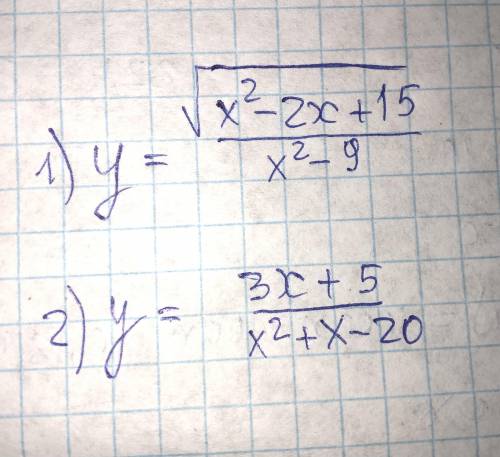 1) y = √(x² - 2x + 15) / (x² - 9)
2) y = (3x + 5) / (x² + x - 20)